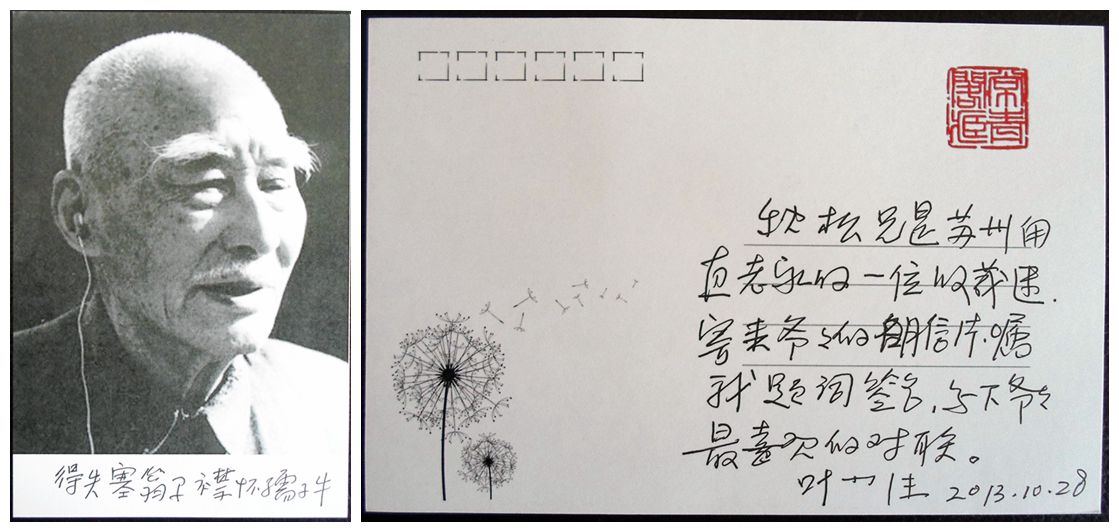 得失塞翁马襟怀孺子牛
松兄是苏州甪
直老的一位收藏迷.
寄来爷爷的明信片。嘱
我题词签名,写下爷爷
最喜欢的对联。
叶 佳 2013.10.28